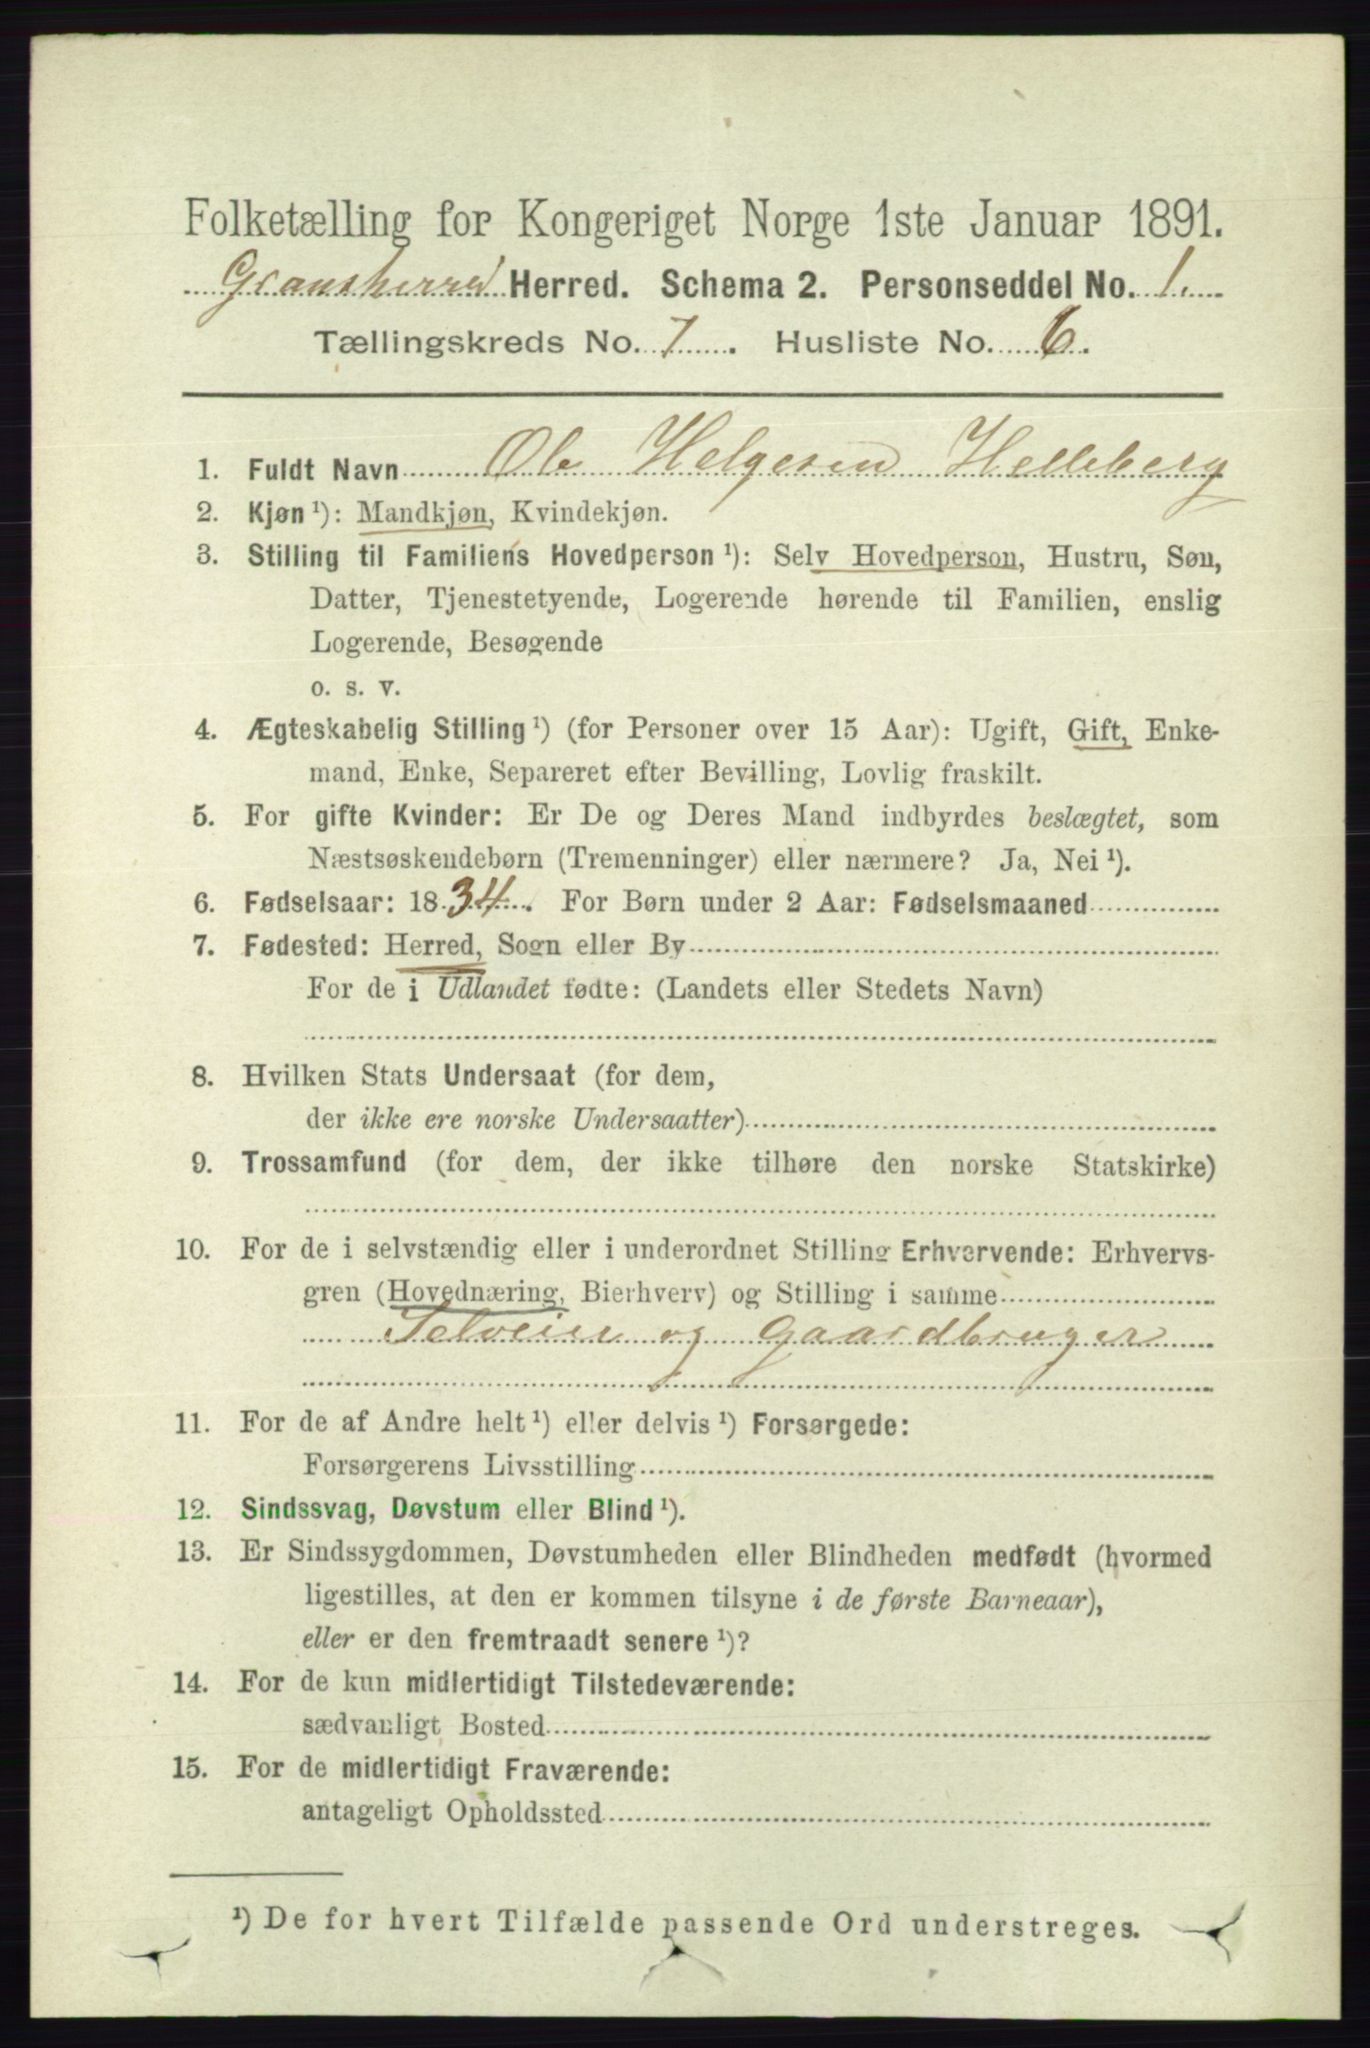 Folketælling for Kongeriget Norge 1ste Januar 1891.
Gransherred Herred. Schema 2. Personseddel No. 1.
Tællingskreds No. 7. Husliste No. 6.
1. Fuldt Navn Ole Helgesen Helleberg
2. Kjøn ¹): Mandkjøn, Kvindekjøn.
3. Stilling til Familiens Hovedperson ¹): Selv Hovedperson, Hustru, Søn,
Datter, Tjenestetyende, Logerende hørende til Familien, enslig
Logerende, Besøgende
o. s. v.
4. Ægteskabelig Stilling ¹) (for Personer over 15 Aar): Ugift, Gift, Enke-
mand, Enke, Separeret efter Bevilling, Lovlig fraskilt.
5. For gifte Kvinder: Er De og Deres Mand indbyrdes beslægtet, som
Næstsøskendebørn (Tremenninger) eller nærmere? Ja, Nei ¹).
6. Fødselsaar: 1834. For Børn under 2 Aar: Fødselsmaaned
7. Fødested: Herred, Sogn eller By
For de i Udlandet fødte: (Landets eller Stedets Navn)
8. Hvilken Stats Undersaat (for dem,
der ikke ere norske Undersaatter)
9. Trossamfund (for dem, der ikke tilhøre den norske Statskirke)
10. For de i selvstændig eller i underordnet Stilling Erhvervende: Erhvervs-
gren (Hovednæring, Bierhverv) og Stilling i samme
Selveier og Gaardbruger
11. For de af Andre helt ¹) eller delvis ¹) Forsørgede:
Forsørgerens Livsstilling
12. Sindssvag, Døvstum eller Blind ¹).
13. Er Sindssygdommen, Døvstumheden eller Blindheden medfødt (hvormed
ligestilles, at den er kommen tilsyne i de første Barneaar),
eller er den fremtraadt senere ¹)?
14. For de kun midlertidigt Tilstedeværende:
sædvanligt Bosted
15. For de midlertidigt Fraværende:
antageligt Opholdssted
¹) De for hvert Tilfælde passende Ord understreges.